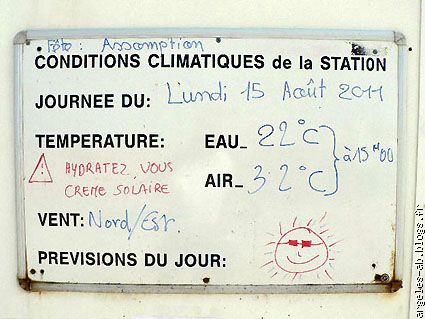 Fête : Assomption
CONDITIONS CLIMATIQUES de la STATION
JOURNEE DU: Lundi 15 Août 2011
TEMPERATURE: EAU_ 22°C
à 15H00
HYDRATEZ VOUS
CREME SOLAIRE
AIR_ 32°C
VENT: Nord/Est.
PREVISIONS DU JOUR:
angeles-ab.blogs.fr